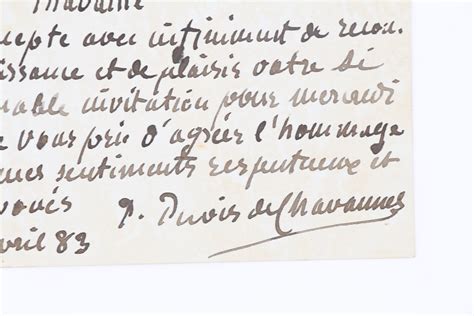 Madame
cepte avec infiniment de recon.
issance et de plaisir votre si
mable invitation pour mercredi
e vous prie d'agréer l'hommage
mes sentiments respectueux et
voués P. Puvis de Chavannes
vril 83